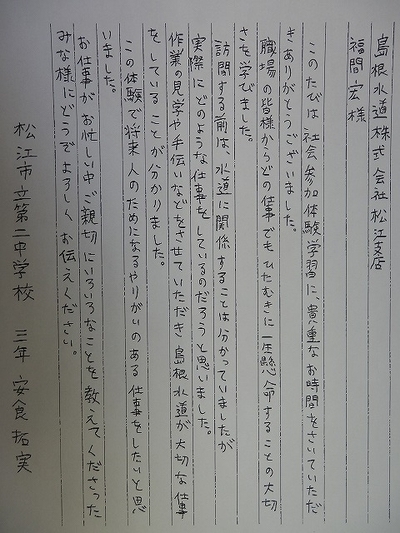 島根水道株式会社松江支店
福間宏様
このたびは、社会参加体験学習に、貴重なお時間をさいていただ
きありがとうございました。
職場の皆様からどの仕事でもひたむきに一生懸命することの大切
さを学びました。
訪問する前は、水道に関係することは分かっていましたが
実際にどのような仕事をしているのだろうと思いました。
作業の見学や手伝いなどをさせていただき島根水道が大切な仕事
をしていることが分かりました。
この体験で将来人のためになるやりがいのある仕事をしたいと思
いました。
お仕事がお忙しい中ご親切にいろいろなことを教えてくださった
みな様にどうぞよろしくお伝えください。
松江市立第二中学校 三年 安食拓実